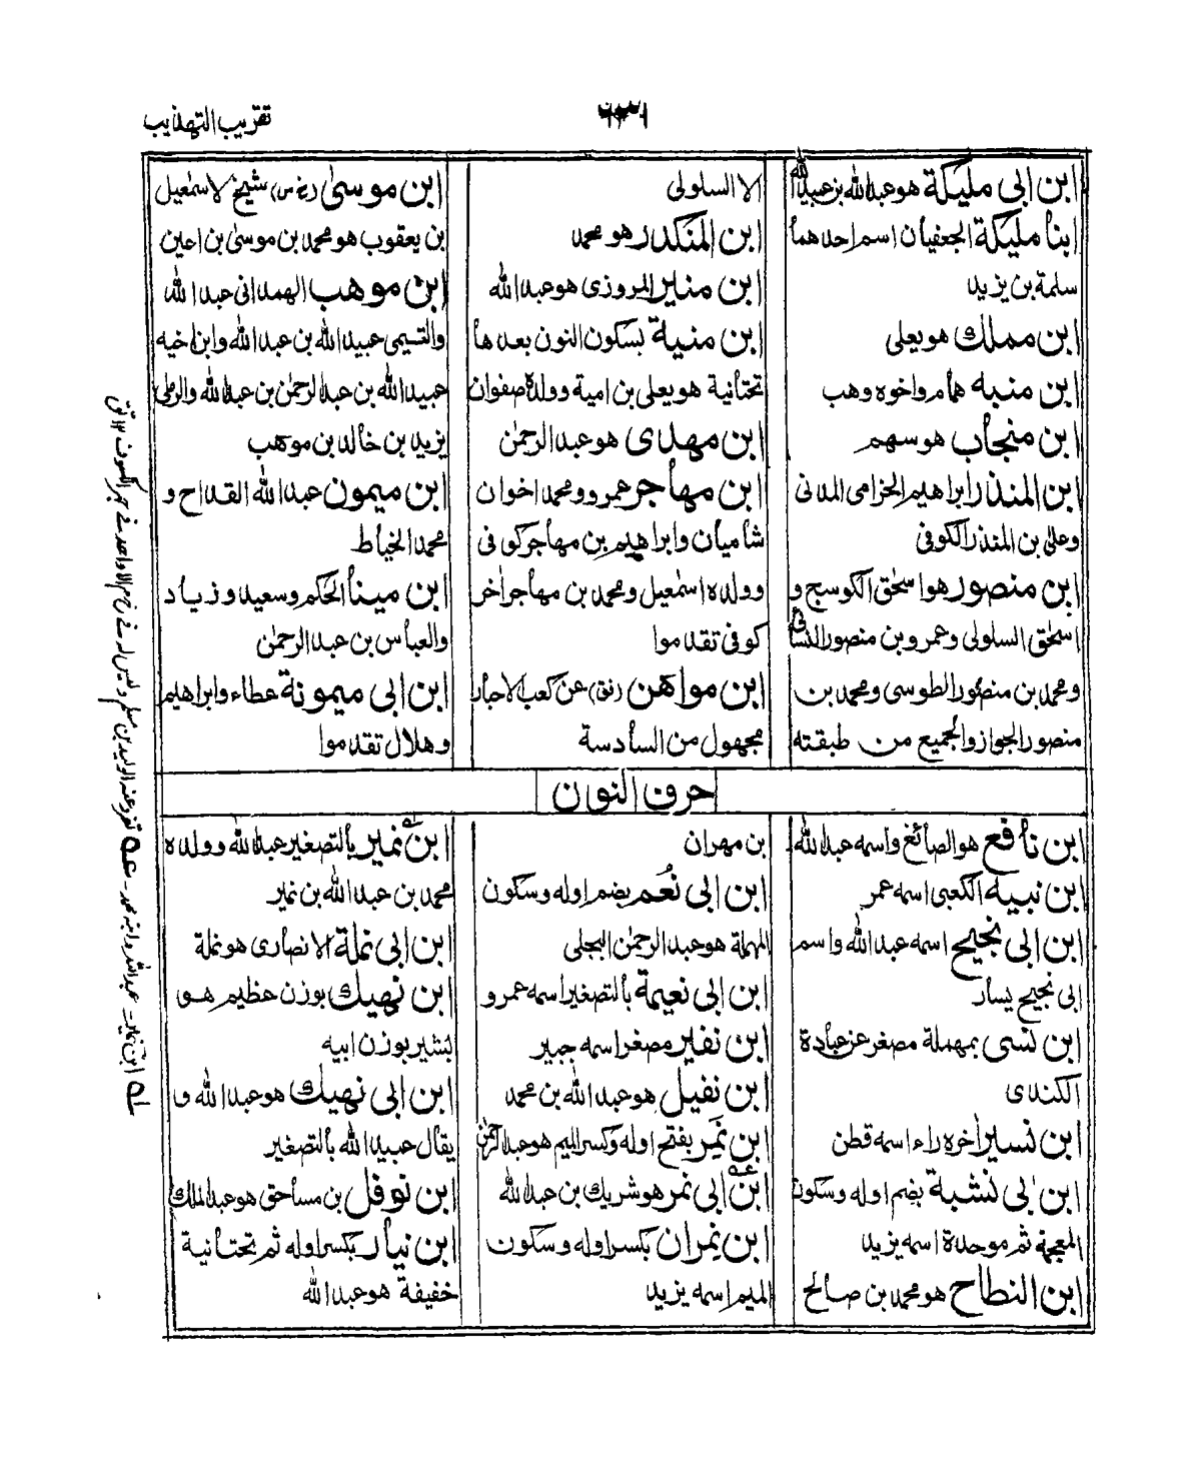 تقريب التهذيب
ابن ابى مليكة هو عبد الله بن عبيد الله
ابنا مليكة الجعفيان اسم احدهما
سلمة بن يزيد
ابن مملك هو يعلى
ابن منبه همام واخوه وهب
ابن منجاب هو سهم
ابن المنذر ابراهيم الحزامى المدنى
وعلى بن المنذر الكوفى
ابن منصور هو اسحٰق الكوسج و
اسحٰق السلولى وعمرو بن منصور النسائى
ومحمد بن منصور الطوسى ومحمد بن
منصور الجواز والجميع من طبقته
الا السلولى
ابن المنكدر هو محمد
ابن منير المروزى هو عبد الله
ابن منية بسكون النون بعدها
تحتانية هو يعلى بن امية وولده صفوان
ابن مهدى هو عبد الرحمٰن
ابن مهاجر عمرو ومحمد اخوان
شاميان وابراهيم بن مهاجر كوفى
وولده اسمٰعيل ومحمد بن مهاجر اخر
كوفى تقدموا
ابن مواهن عن كعب الاحبار
مجهول من السادسة
ابن موسىٰ شيخ لاسمٰعيل
بن يعقوب هو محمد بن موسىٰ بن اعين
ابن موهب الهمدانى عبد الله
والتيمى عبيد الله بن عبد الله وابن اخيه
عبيد الله بن عبد الرحمٰن بن عبد الله والرملى
يزيد بن خالد بن موهب
ابن ميمون عبد الله القداح و
محمد الخياط
ابن مينا الحكم وسعيد وزياد
والعباس بن عبد الرحمٰن
ابن ابى ميمونة عطاء وابراهيم
وهلال تقدموا
حرف النون
ابن نافع هو الصائغ واسمه عبد الله
ابن نبيه الكعبى اسمه عمر
ابن ابى نجيح اسمه عبد الله واسم
ابى نجيح يسار
ابن نسى بمهملة مصغر عن عبادة
الكندى
ابن نسير اخره راء اسمه قطن
ابن ابى نشبة بضم اوله وسكون
المعجمة ثم موحدة اسمه يزيد
ابن النطاح هو محمد بن صالح
بن مهران
ابن ابى نُعم بضم اوله وسكون
المهملة هو عبد الرحمٰن البجلى
ابن ابى نعيمة بالتصغير اسمه عمرو
ابن نفير مصغر اسمه جبير
ابن نفيل هو عبد الله بن محمد
ابن نَمِر بفتح اوله وكسر الميم هو عبد الرحمٰن
ابن ابى نمر هو شريك بن عبد الله
ابن نِمران بكسر اوله وسكون
الميم اسمه يزيد
ابن نمير بالتصغير عبد الله وولده
محمد بن عبد الله بن نمير
ابن ابى نملة الانصارى هو نملة
ابن نهيك بوزن عظيم هو
بشير بوزن ابيه
ابن ابى نهيك هو عبد الله و
يقال عبيد الله بالتصغير
ابن نوفل بن مساحق هو عبد الملك
ابن نيار بكسر اوله ثم تحتانية
خفيفة هو عبد الله